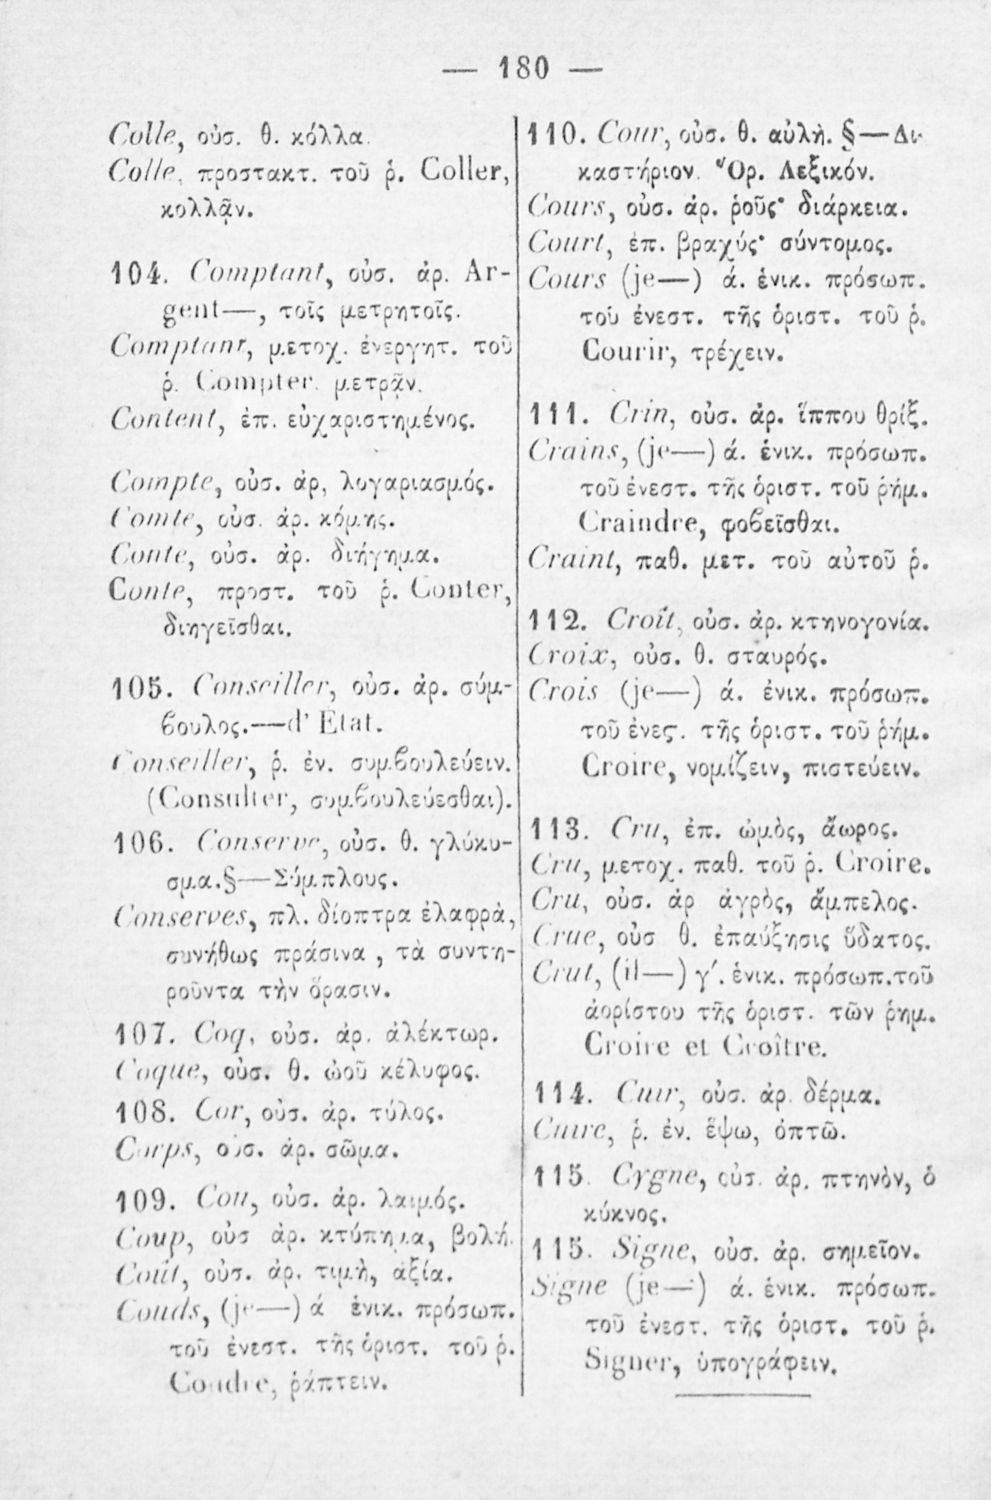 — 180 —
Colle, οὐσ. θ. κόλλα.
Colle, προστακτ. τοῦ ῥ. Coller,
κολλᾷν.
104. Comptant, οὐσ. ἀρ. Ar-
gent—, τοῖς μετρητοῖς.
Comptant, μετοχ. ἐνεργητ. τοῦ
ῥ. Compter. μετρᾷν.
Content, ἐπ. εὐχαριστημένος.
Compte, οὐσ. ἀρ, λογαριασμός.
Comte, οὐσ. ἀρ. κόμης.
Conte, οὐσ. ἀρ. διήγημα.
Conte, προστ. τοῦ ῥ. Conter,
διηγεῖσθαι.
105. Conseiller, οὐσ. ἀρ. σύμ-
ϐουλος.—d' Etat.
Conseiller, ῥ. ἐν. συμϐουλεύειν.
(Consulter, συμϐουλεύεσθαι).
106. Conserve, οὐσ. θ. γλύκυ-
σμα.§—Σύμπλους.
Conserves, πλ. δίοπτρα ἐλαφρὰ,
συνήθως πράσινα , τὰ συντη-
ροῦντα τὴν ὅρασιν.
107. Coq, οὐσ. ἀρ. ἀλέκτωρ.
Coque, οὐσ. θ. ὠοῦ κέλυφος.
108. Cor, οὐσ. ἀρ. τύλος.
Corps, οὐσ. ἀρ. σῶμα.
109. Cou, οὐσ. ἀρ. λαιμός.
Coup, οὐσ ἀρ. κτύπημα, βολή.
Coût, οὐσ. ἀρ. τιμὴ, ἀξία.
Couds, (je—) ά ἑνικ. πρόσωπ.
τοῦ ἐνεστ. τῆς ὁριστ. τοῦ ῥ.
Coudre, ῥάπτειν.
110. Cour, οὐσ. θ. αὐλή. §—Δι-
καστήριον. Ὅρ. Λεξικόν.
Cours, οὐσ. ἀρ. ῥοῦς· διάρκεια.
Court, ἐπ. βραχύς· σύντομος.
Cours (je—) ά. ἑνικ. πρόσωπ.
τοῦ ἐνεστ. τῆς ὁριστ. τοῦ ῥ.
Courir, τρέχειν.
111. Crin, οὐσ. ἀρ. ἵππου θρίξ.
Crains, (je—) ά. ἑνικ. πρόσωπ.
τοῦ ἐνεστ. τῆς ὁριστ. τοῦ ῥήμ.
Craindre, φοϐεῖσθαι.
Craint, παθ. μετ. τοῦ αὐτοῦ ῥ.
112. Croît, οὐσ. ἀρ. κτηνογονία.
Croix, οὐσ. θ. σταυρός.
Crois (je—) ά. ἑνικ. πρόσωπ.
τοῦ ἐνεϛ. τῆς ὁριστ. τοῦ ῥήμ.
Croire, νομίζειν, πιστεύειν.
113. Cru, ἐπ. ὠμὸς, ἄωρος.
Cru, μετοχ. παθ. τοῦ ῥ. Croire.
Cru, οὐσ. ἀρ ἀγρὸς, ἄμπελος.
Crue, οὐσ θ. ἐπαύξησις ὕδατος.
Crut, (il—) γ΄. ἑνικ. πρόσωπ.τοῦ
ἀορίστου τῆς ὁριστ. τῶν ῥημ.
Croire et Croître.
114. Cuir, οὐσ. ἀρ. δέρμα.
Cuire, ῥ. ἐν. ἕψω, ὀπτῶ.
115. Cygne, οὐσ. ἀρ. πτηνὸν, ὁ
κύκνος.
115. Signe, οὐσ. ἀρ. σημεῖον.
Signe (je—) ά. ἑνικ. πρόσωπ.
τοῦ ἐνεστ. τῆς ὁριστ. τοῦ ῥ.
Signer, ὑπογράφειν.